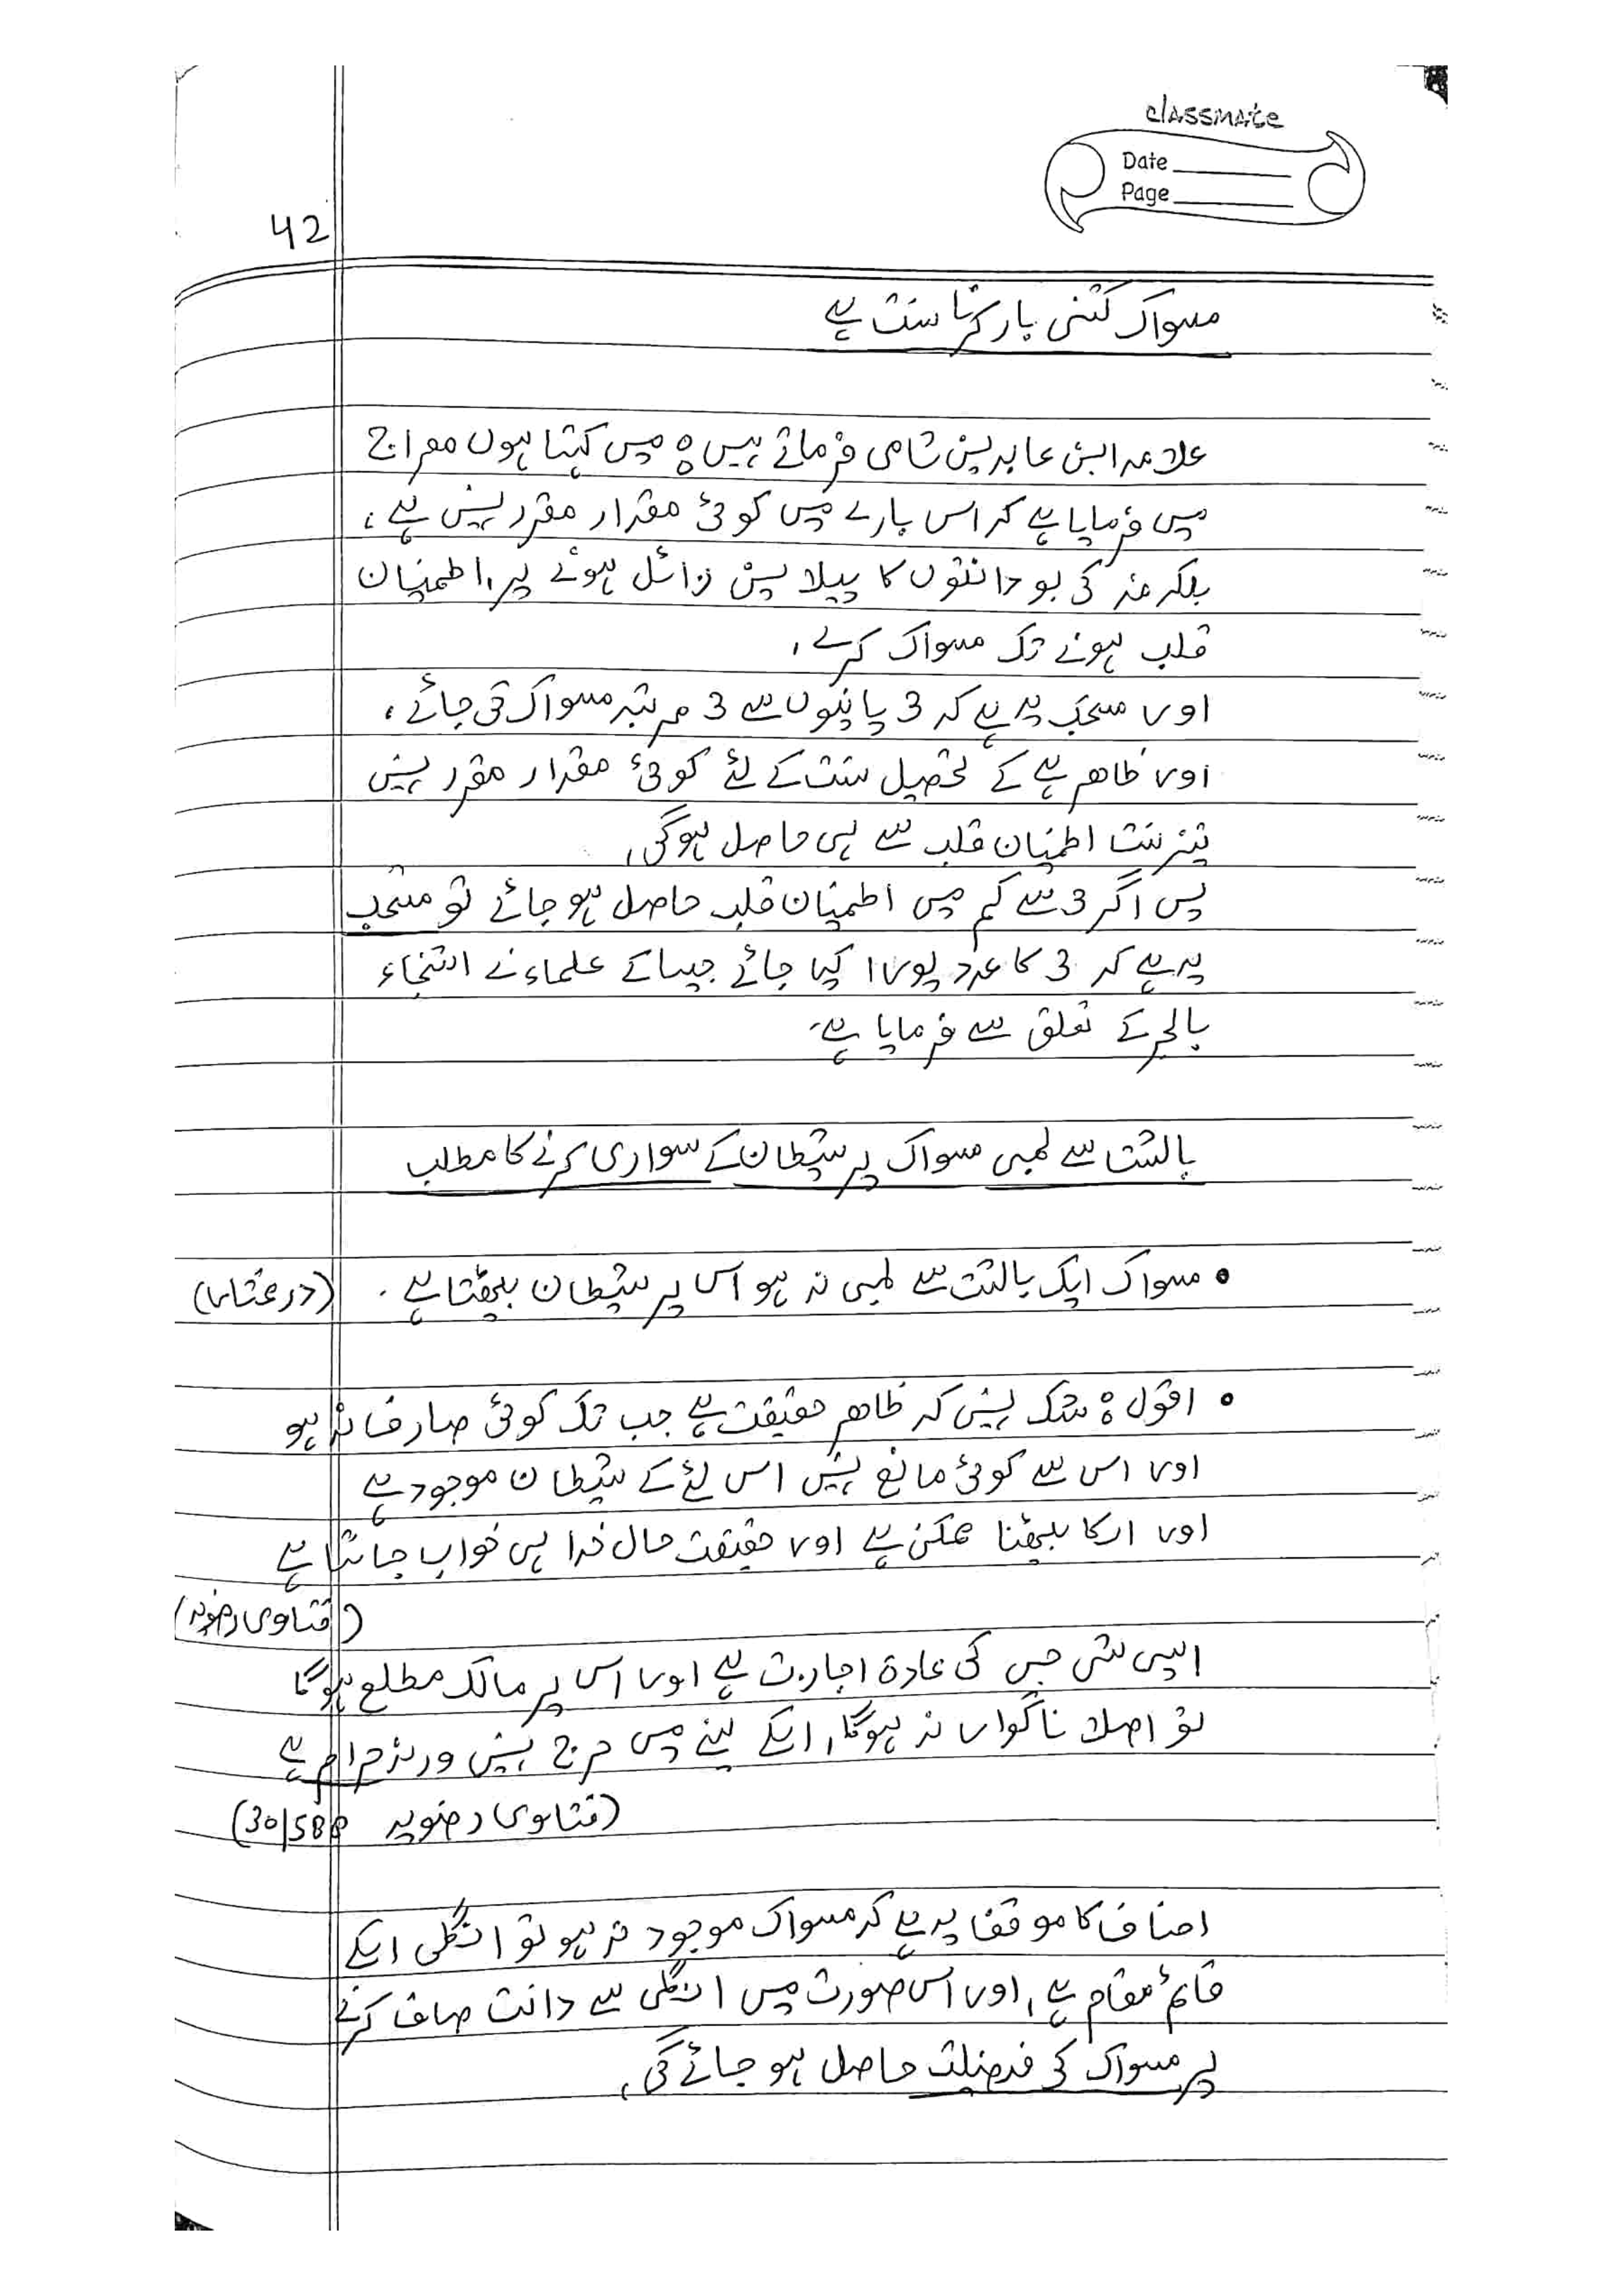 classmate
Date
Page
42
مسواک کتنی بار کرنا سنت ہے
علامہ ابن عابدین شامی فرماتے ہیں : میں کہتا ہوں معراج
میں فرمایا ہے کہ اس بارے میں کوئی مقدار مقرر نہیں ہے،
بلکہ منہ کی بو دانتوں کا پیلا پن زائل ہونے پر، اطمنیان
قلب ہونے تک مسواک کرے،
اور مستحب یہ ہے کہ 3 پانیوں سے 3 مرتبہ مسواک کی جائے،
اور ظاہر ہے کے تحصیل سنت کے لئے کوئی مقدار مقرر نہیں
نیز سنت اطمنیان قلب سے ہی حاصل ہوگی،
پس اگر 3 سے کم میں اطمنیان قلب حاصل ہو جائے تو مستحب
یہ ہے کہ 3 کا عدد پورا کیا جائے جیسا کے علماء نے استنجاء
بالحجر کے تعلق سے فرمایا ہے۔
بالشت سے لمبی مسواک پر شیطان کے سواری کرنے کا مطلب
• مسواک ایک بالشت سے لمبی نہ ہو اس پر شیطان بیٹھتا ہے۔ (در مختار)
• اقول : شک نہیں کہ ظاھر حقیقت ہے جب تک کوئی صارف نہ ہو
اور اس سے کوئی مانع نہیں اس لئے کے شیطان موجود ہے
اور اسکا بیٹھنا ممکن ہے اور حقیقت حال خدا ہی خواب جانتا ہے
(فتاوی رضویہ)
ایسی شئ جس کی عادۃ اجازت ہے اور اس پر مالک مطلع ہوگا
تو اصلا ناگوار نہ ہوگا، اسکے لینے میں حرج نہیں ورنہ حرام ہے
(فتاوی رضویہ 30/588)
احناف کا موقف یہ ہے کہ مسواک موجود نہ ہو تو انگلی اسکے
قائم مقام ہے، اور اس صورت میں انگلی سے دانت صاف کرنے
پر مسواک کی فضیلت حاصل ہو جائے گی،